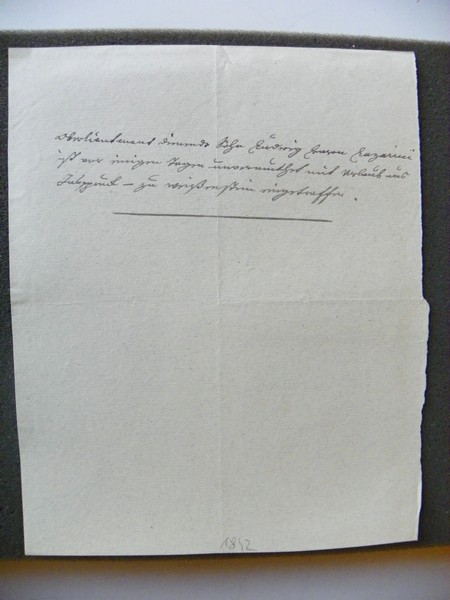 Oberlieutenant dienende Sohn Ludwig Baron Lazarini
ist vor einigen Tagen unvermuthet mit Urlaub aus
Insbruck – zu Weißenstein eingetroffen.
1842